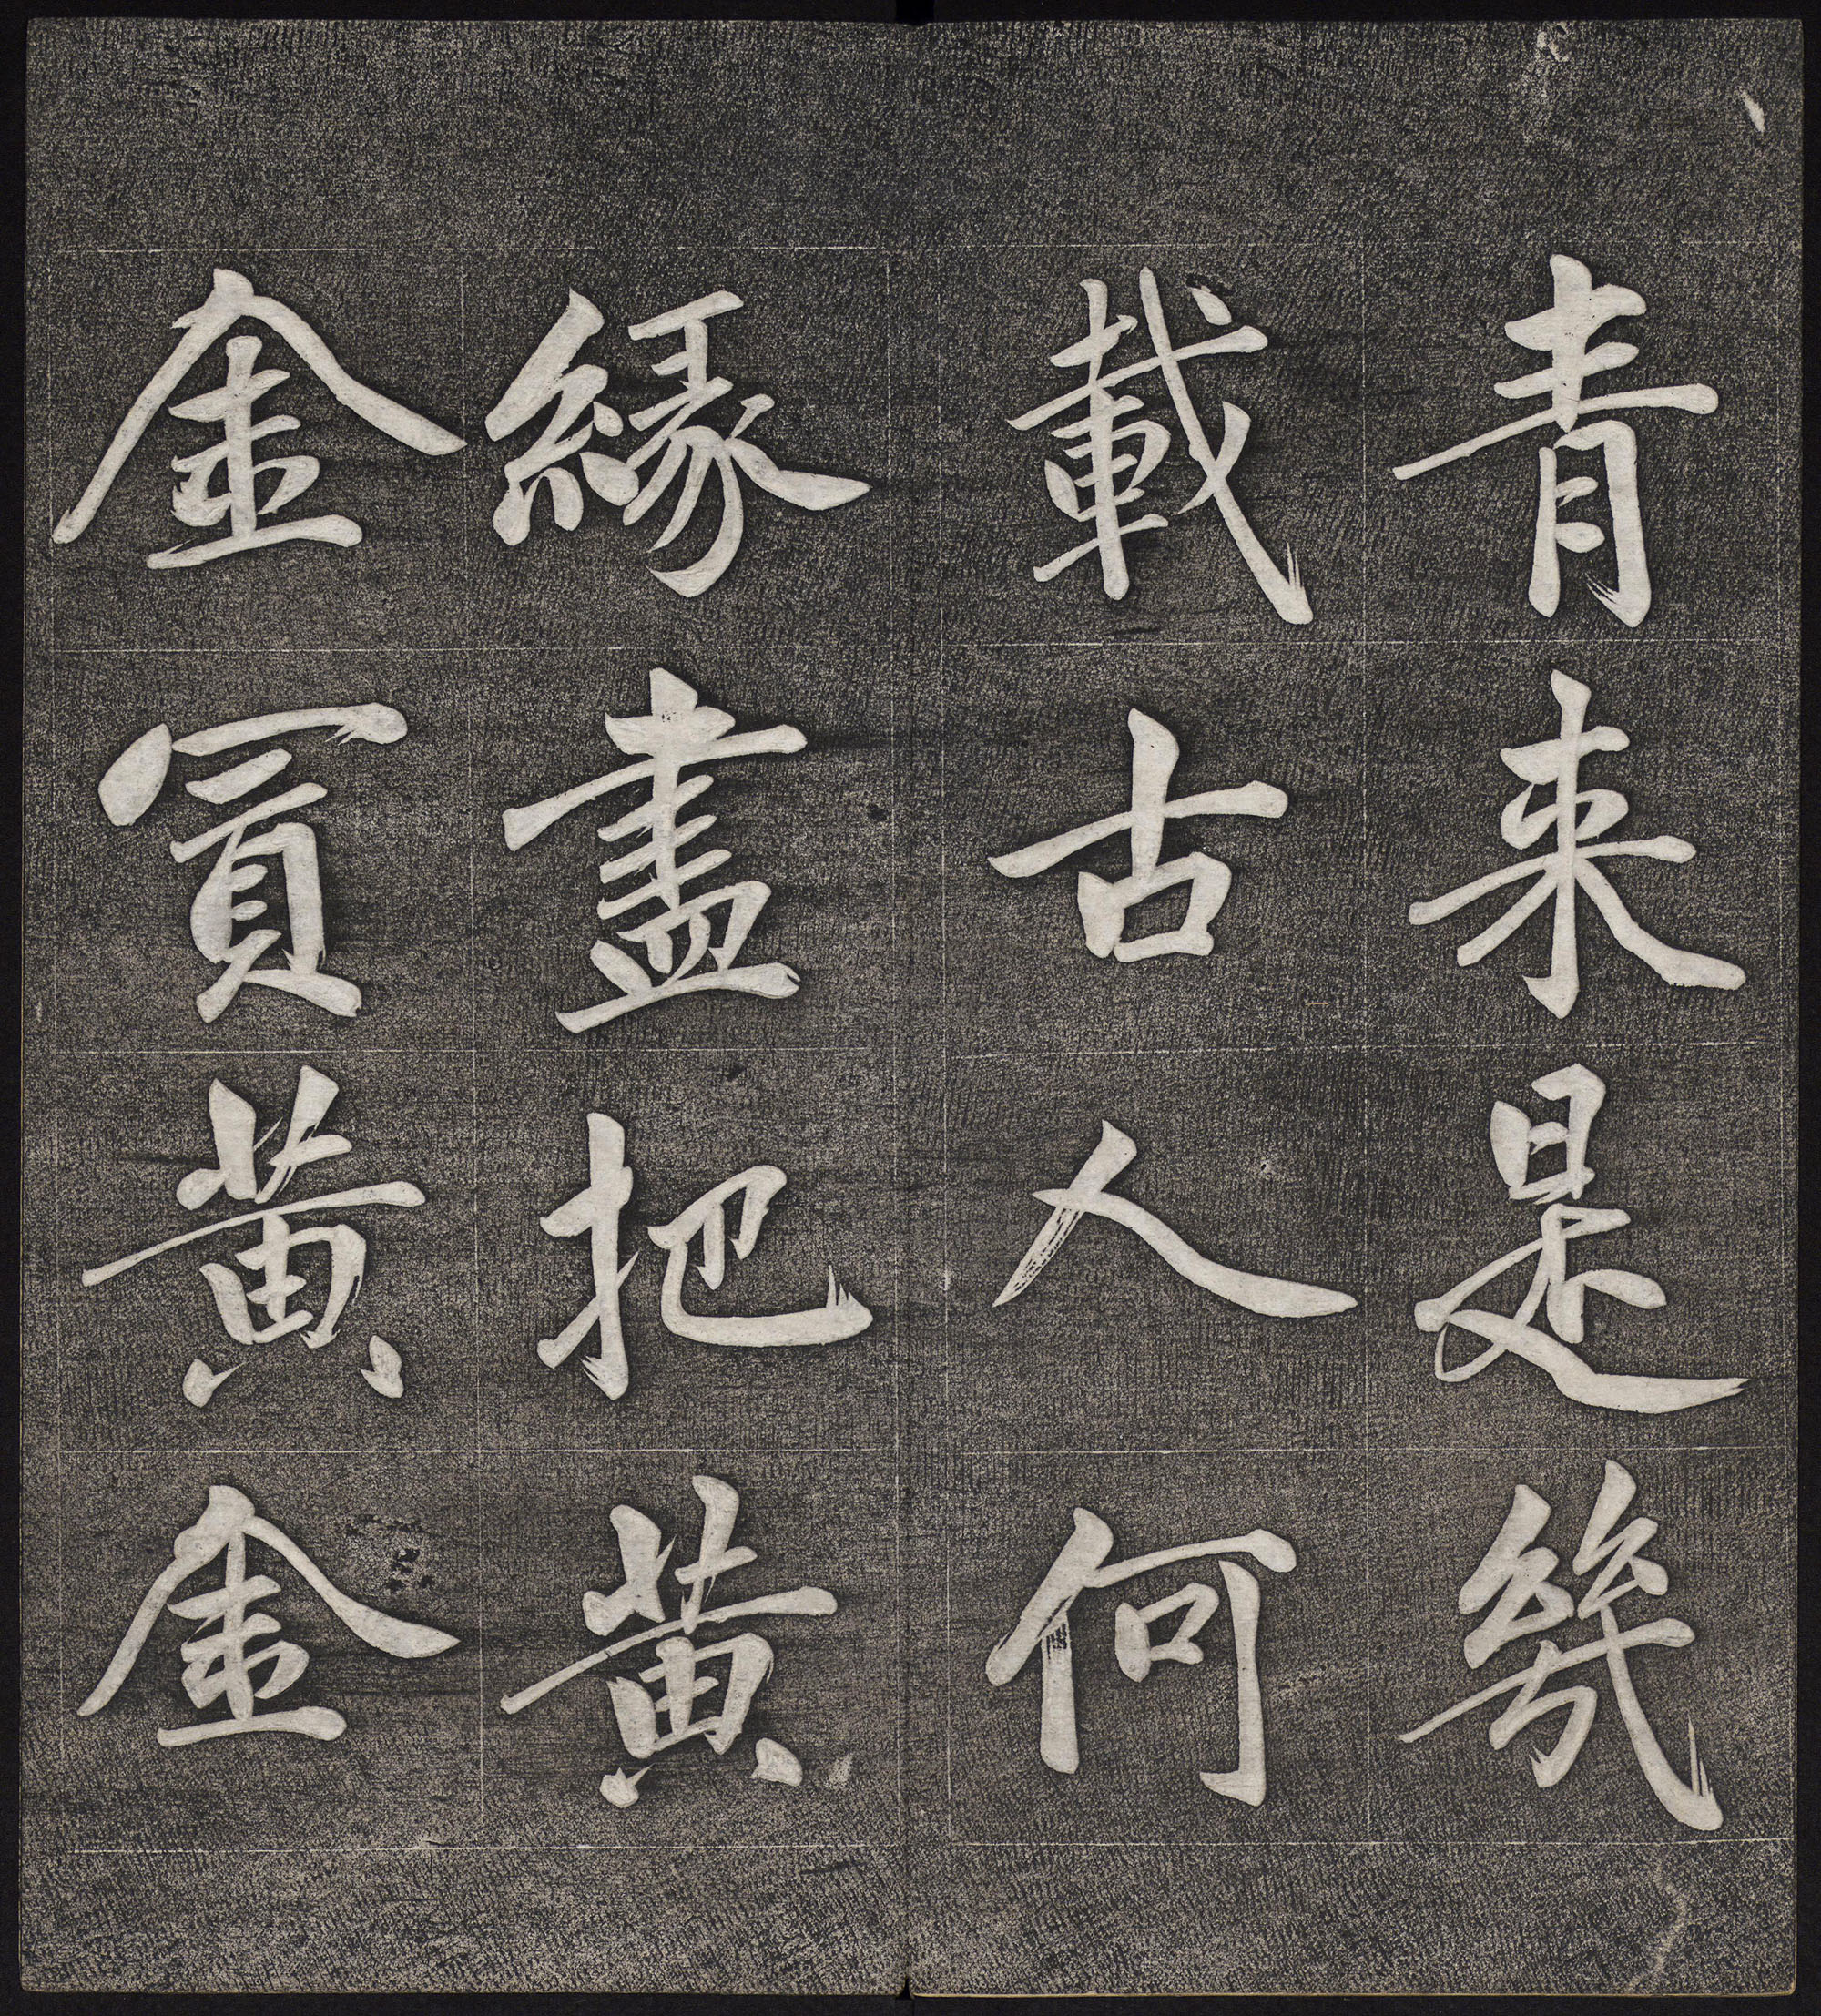 青来是幾
載古人何
緣盡把黄
金買黄金